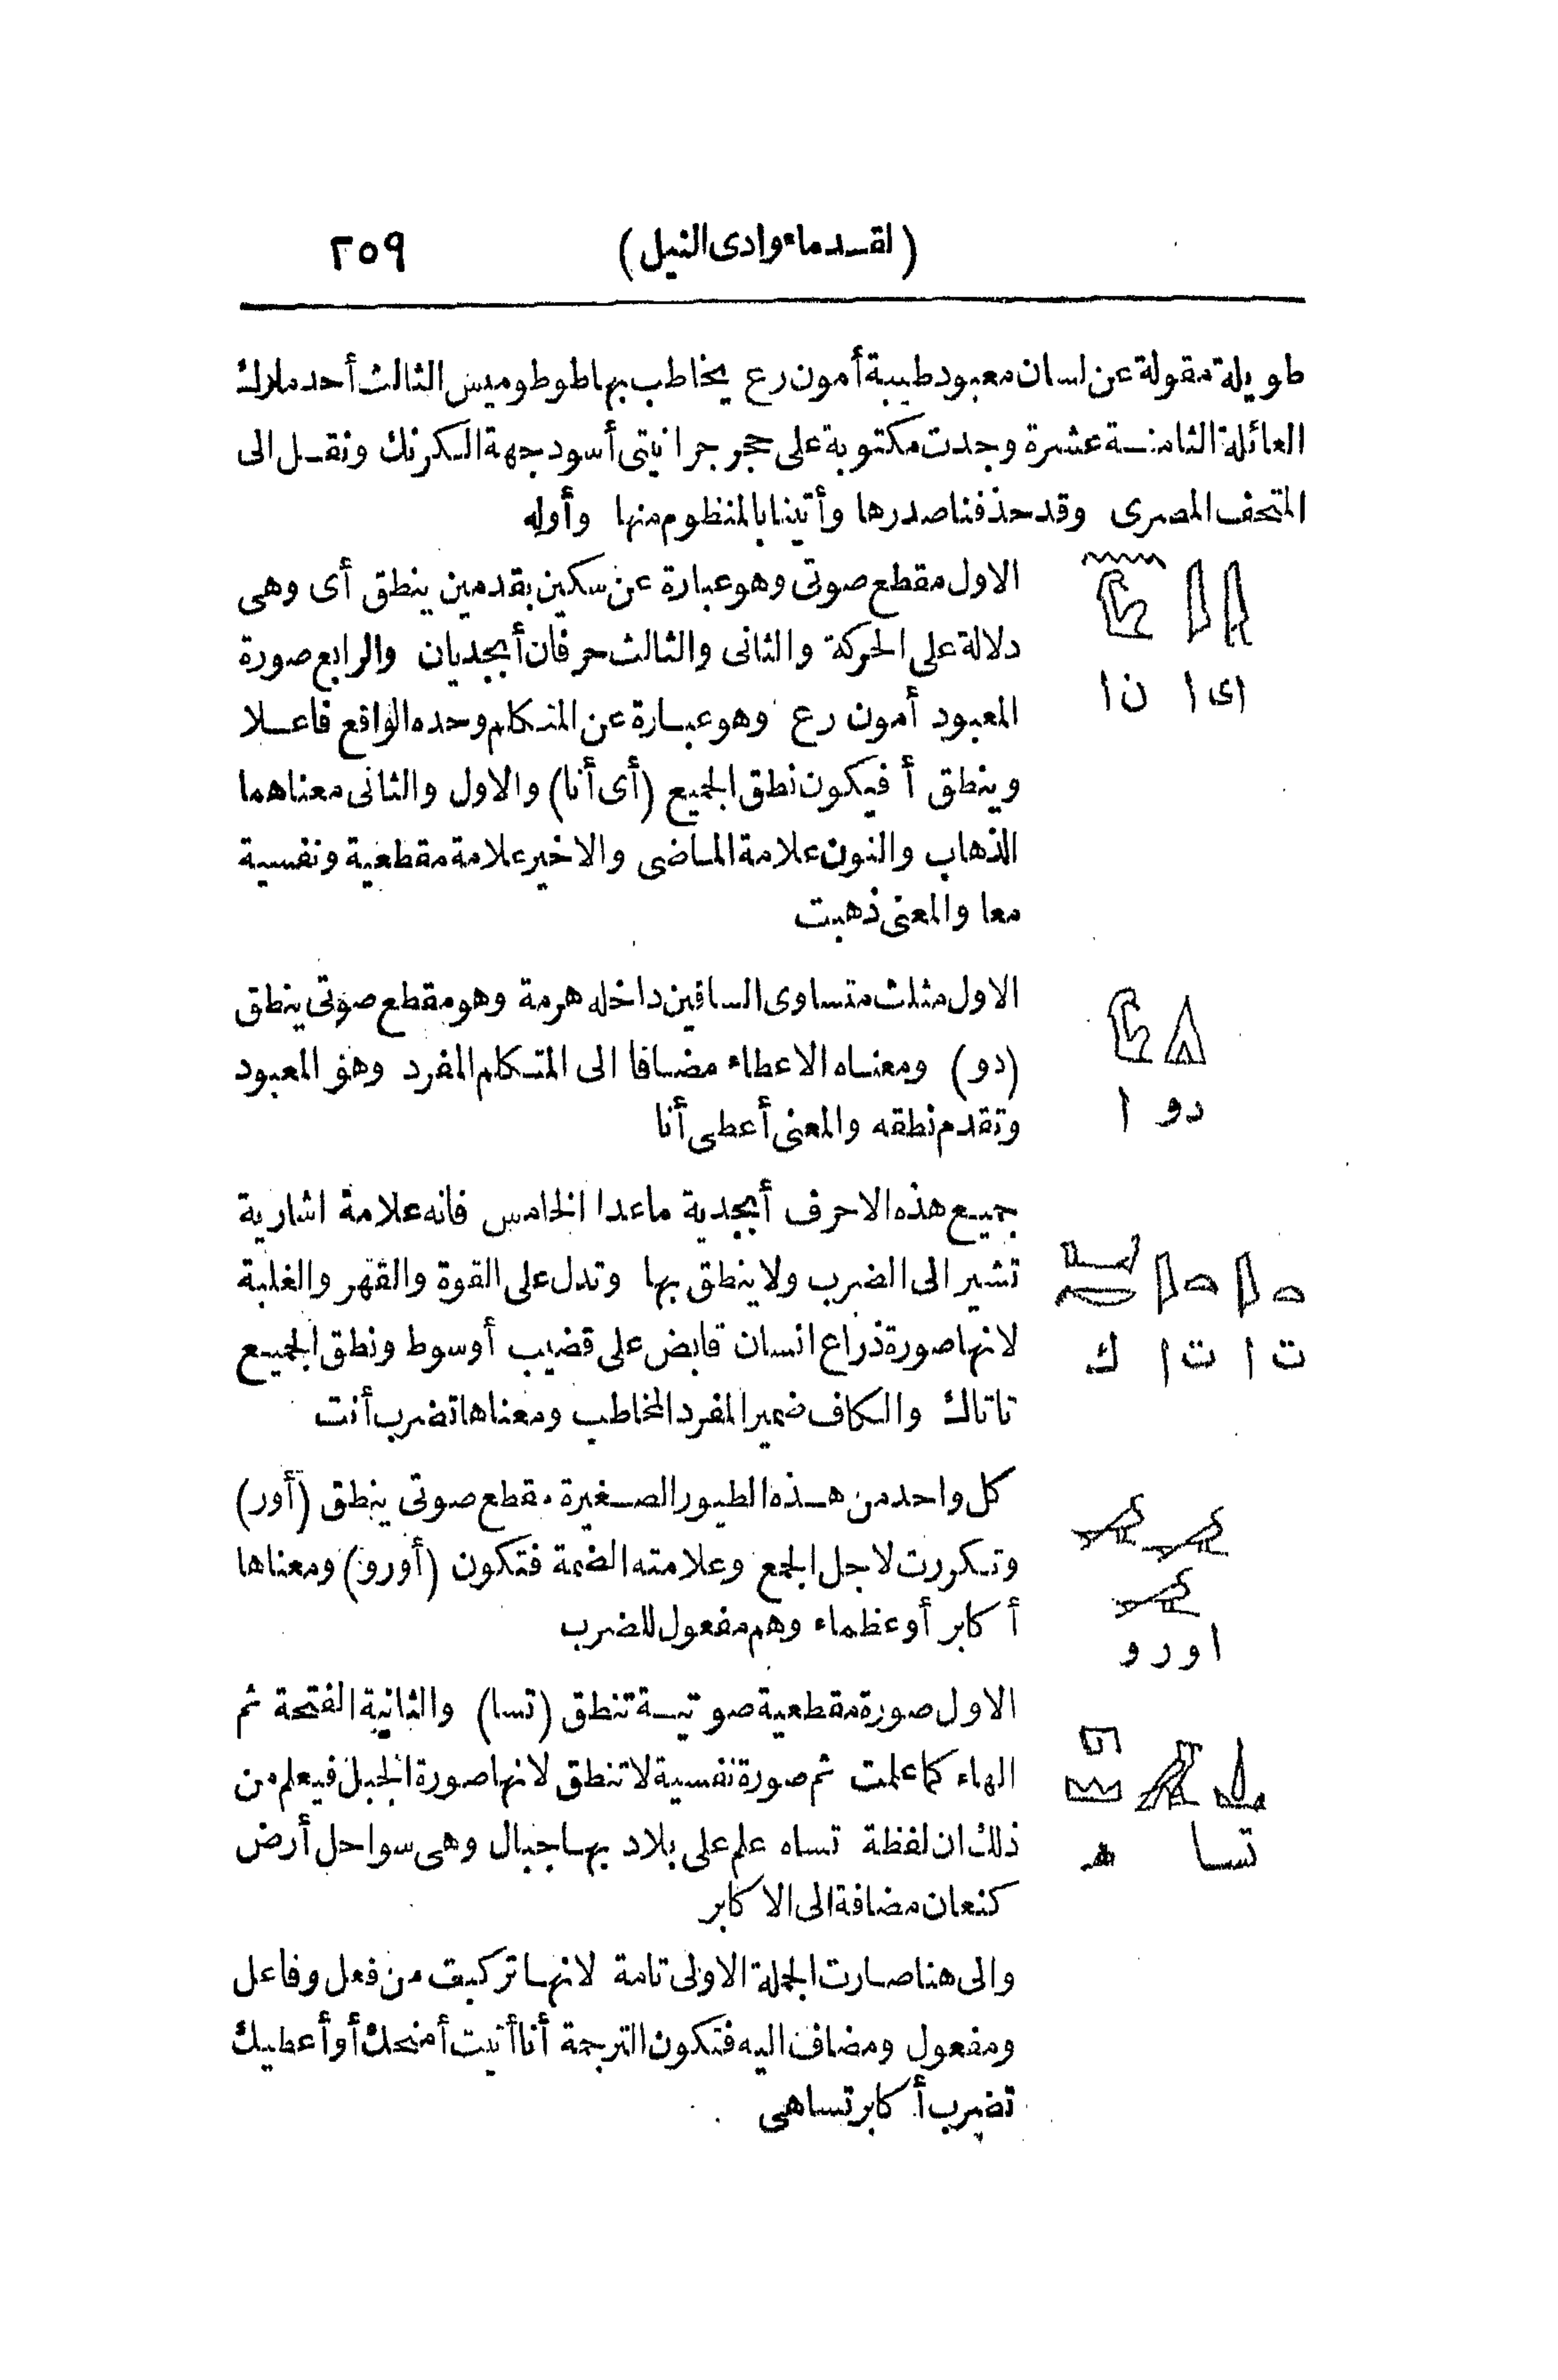 (لقدماء وادى النيل) ٢٥٩
طويلة مقولة عن لسان معبود طيبة أمون رع يخاطب بها طوطوميس الثالث أحد ملوك
العائلة الثامنة عشرة وجدت مكتوبة على حجر جرانيتى أسود جهة الكرنك ونقل الى
المتحف المصرى وقد حذفنا صدرها وأتينا بالمنظوم منها وأوله
الاول مقطع صوتى وهو عبارة عن سكين بقدمين ينطق أى وهى
دلالة على الحركة والثانى والثالث حرفان أبجديان والرابع صورة
اى ا ن ا
المعبود أمون رع وهو عبارة عن المتكلم وحده الواقع فاعلا
وينطق أ فيكون نطق الجميع (أى أنا) والاول والثانى معناهما
الذهاب والنون علامة الماضى والاخير علامة مقطعية ونفسية
معا والمعنى ذهبت
الاول مثلث متساوى الساقين داخله هرمة وهو مقطع صوتى ينطق
(دو) ومعناه الاعطاء مضافا الى المتكلم المفرد وهو المعبود
دو ا
وتقدم نطقه والمعنى أعطى أنا
جميع هذه الاحرف أبجدية ماعدا الخامس فانه علامة اشارية
تشير الى الضرب ولا ينطق بها وتدل على القوة والقهر والغلبة
لانها صورة ذراع انسان قابض على قضيب أو سوط ونطق الجميع
ت ا ت ا ك
تاتاك والكاف ضمير المفرد المخاطب ومعناها تضرب أنت
كل واحد من هذه الطيور الصغيرة مقطع صوتى ينطق (أور)
وتكررت لاجل الجمع وعلامته الضمة فتكون (أورو) ومعناها
أكابر أو عظماء وهم مفعول للضرب
ا و ر و
الاول صورة مقطعية صوتية تنطق (تسا) والثانية الفتحة ثم
الهاء كما علمت ثم صورة نفسية لا تنطق لانها صورة الجبل فيعلم من
ذلك ان لفظة تساه علم على بلاد بها جبال وهى سواحل أرض
تسا ه
كنعان مضافة الى الاكابر
والى هنا صارت الجملة الاولى تامة لانها تركبت من فعل وفاعل
ومفعول ومضاف اليه فتكون الترجمة أنا أتيت أمنحك أو أعطيك
تضرب أكابر تساهى